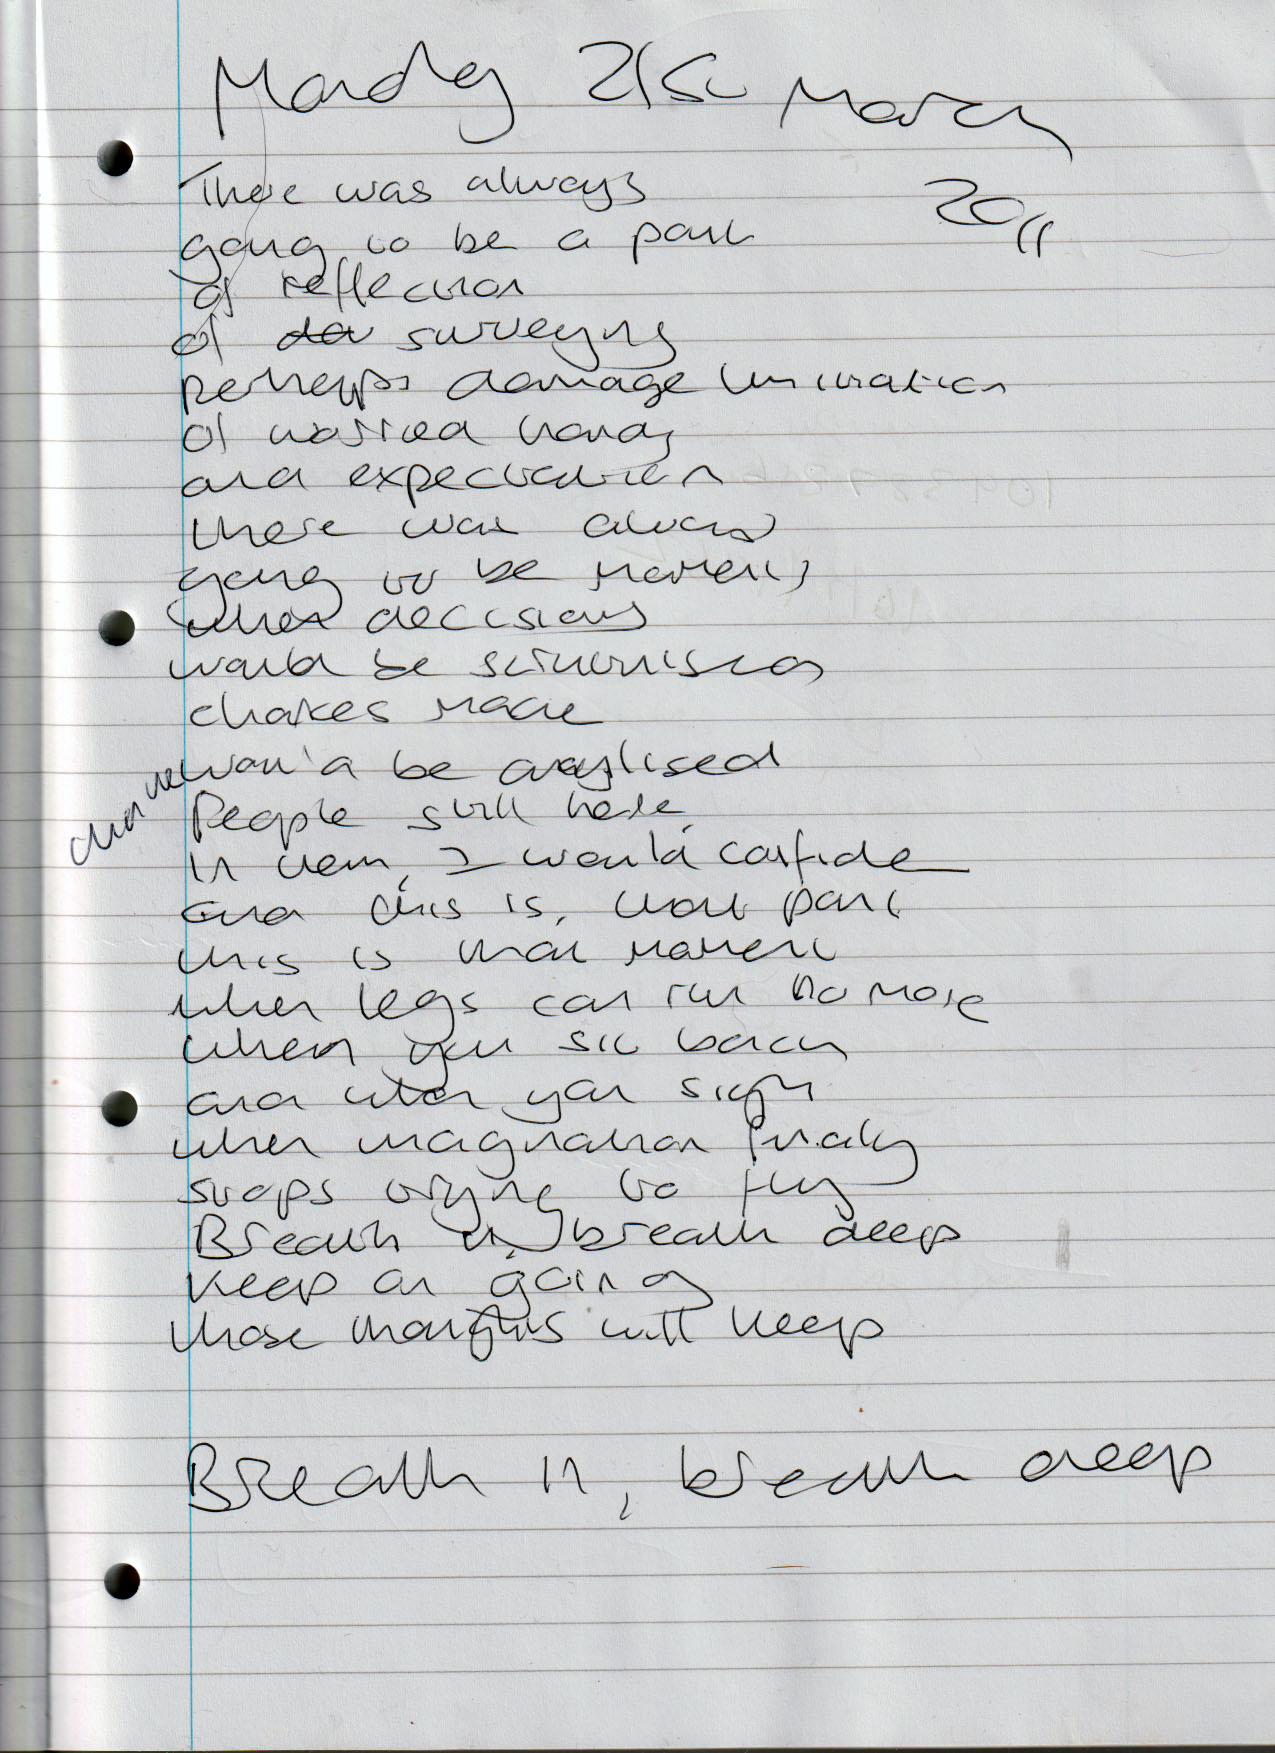 Monday 21st March
2011
There was always
going to be a part
of reflection
of surveying
perhaps damage limitation
of worried hands
and expectation
there was always
going to be moments
when decisions
would be scrutinised
choices made
would be anaylised
People still here
In them, I would confide
and this is, that part
this is that moment
when legs can run no more
when you sit back
and when you sigh
when imagination finally
stops trying to fly
Breath in, breath deep
Keep on going
those thoughts will keep
Breath in, breath deep